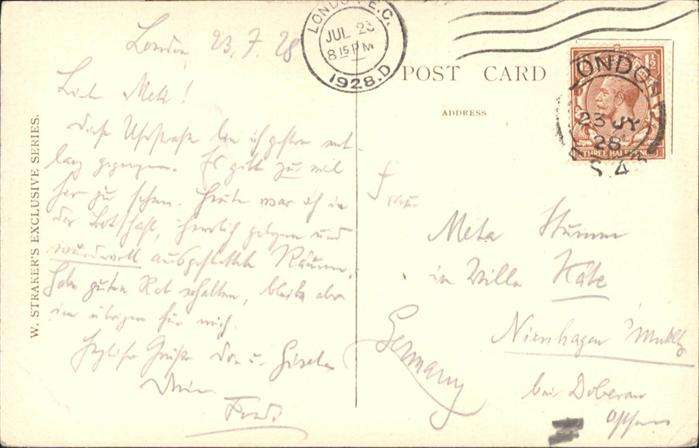 London 23.7.28
Meta!
Diese ich gestern ent-
lang gegangen. Es gibt zu viel
hier zu sehen. Heute war ich in
der Botschaft, herrlich gelegen und
wundervoll ausgestattete Räume.
Habe guten Rat erhalten, bleibe aber
im übrigen für mich.
Herzliche Grüße Dir u.
Dein
W. STRAKER'S EXCLUSIVE SERIES.
LONDON E.C.
JUL 23
8 15 PM
1928.D
POST CARD
ADDRESS
LONDON
23 JY
28
S
THREE HALFPENCE
Frau
Meta
in Villa Käte
Nienhagen
bei Doberan
Ostsee
Germany